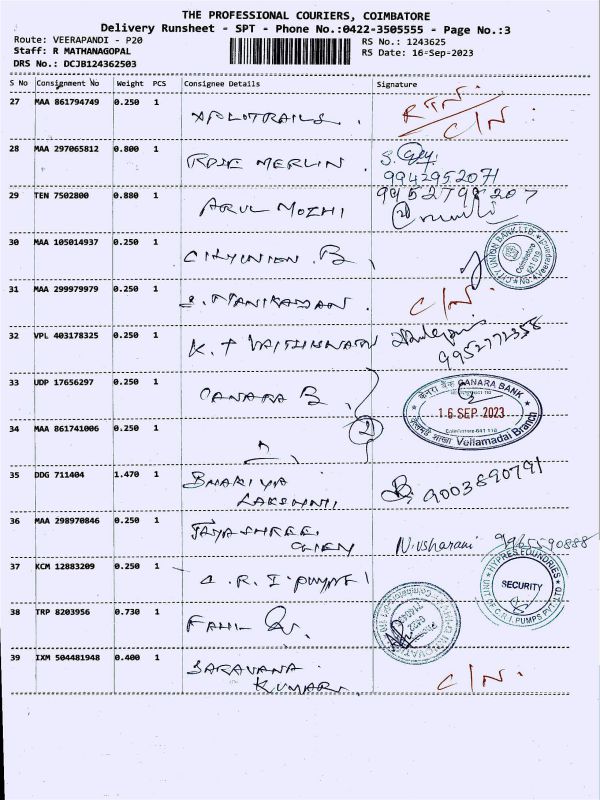 THE PROFESSIONAL COURIERS, COIMBATORE
Delivery Runsheet - SPT - Phone No.:0422-3505555 - Page No.:3
Route: VEERAPANDI - P20
RS No.: 1243625
Staff: R MATHANAGOPAL
RS Date: 16-Sep-2023
DRS No.: DCJB124362503
S No Consignment No Weight PCS Consignee Details Signature
27 MAA 861794749 0.250 1
RTN.
C/N.
28 MAA 297065812 0.800 1 ROSE MERLIN.
9942952071
29 TEN 7502800 0.880 1 ARUL MOZHI
9952798207
30 MAA 105014937 0.250 1 CITYUNION B,
CITY UNION BANK LTD.
Coimbatore
31 MAA 299979979 0.250 1 S. MANIKANDAN. C/N.
32 VPL 403178325 0.250 1 K. T VAITHINATHAN
9952772358
33 UDP 17656297 0.250 1 CANARA B,
केनरा बैंक CANARA BANK
16 SEP 2023
Vellamadai Branch
34 MAA 861741006 0.250 1
2
35 DDG 711404 1.470 1 BHAKIYA
LAKSHMI,
9003890791
36 MAA 298970846 0.250 1 JAYASHREE.
N.usharani 9965590888
37 KCM 12883209 0.250 1 C.R.I. PUMPS
HYPRES FOUNDRIES
SECURITY
UNIT OF C.R.I. PUMPS PVT
38 TRP 8203956 0.730 1
39 IXM 504481948 0.400 1 SARAVANA
KUMAR. C/N.